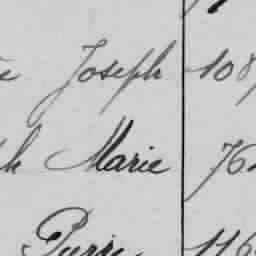 Joseph 108
Marie 76
Pierre 116